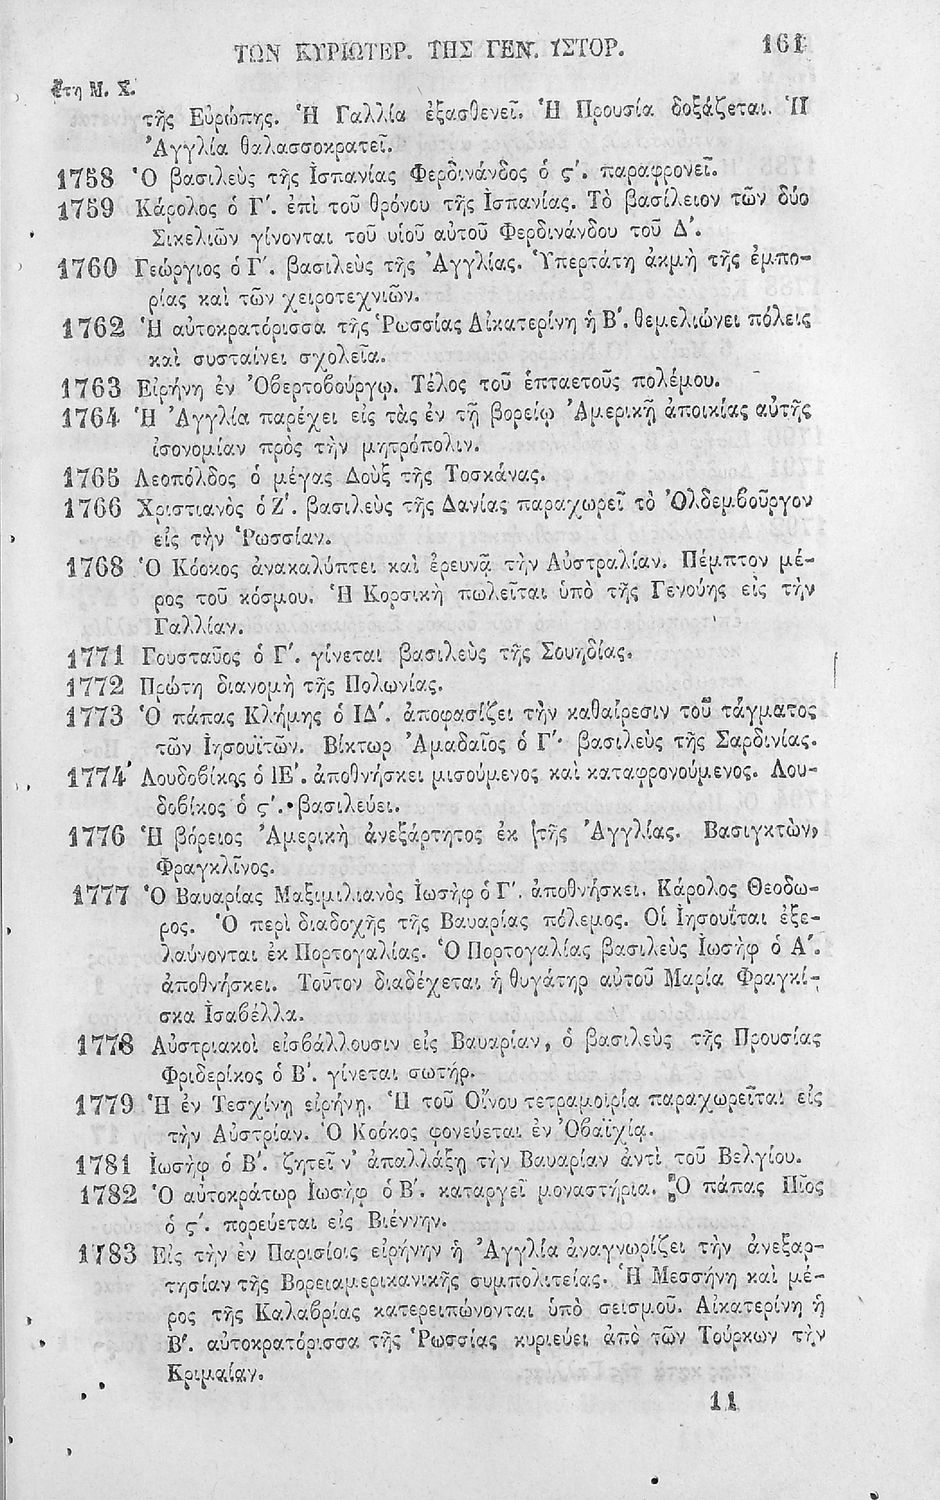 ΤΩΝ ΚΥΡΙΩΤΕΡ. ΤΗΣ ΓΕΝ. ἹΣΤΟΡ. 161
Ἔτη Μ. Χ.
τῆς Εὐρώπης. Ἡ Γαλλία ἐξασθενεῖ. Ἡ Προυσία δοξάζεται. Ἡ
Ἀγγλία θαλασσοκρατεῖ.
1758 Ὁ βασιλεὺς τῆς Ἰσπανίας Φερδινάνδος ὁ ς΄. παραφρονεῖ.
1759 Κάρολος ὁ Γ΄. ἐπὶ τοῦ θρόνου τῆς Ἰσπανίας. Τὸ βασίλειον τῶν δύο
Σικελιῶν γίνονται τοῦ υἱοῦ αὐτοῦ Φερδινάνδου τοῦ Δ΄.
1760 Γεώργιος ὁ Γ΄. βασιλεὺς τῆς Ἀγγλίας. Ὑπερτάτη ἀκμὴ τῆς ἐμπο-
ρίας καὶ τῶν χειροτεχνιῶν.
1762 Ἡ αὐτοκρατόρισσα τῆς Ῥωσσίας Αἰκατερίνη ἡ Β΄. θεμελιώνει πόλεις
καὶ συσταίνει σχολεῖα.
1763 Εἰρήνη ἐν Ὀβερτοβούργῳ. Τέλος τοῦ ἑπταετοῦς πολέμου.
1764 Ἡ Ἀγγλία παρέχει εἰς τὰς ἐν τῇ βορείῳ Ἀμερικῇ ἀποικίας αὐτῆς
ἰσονομίαν πρὸς τὴν μητρόπολιν.
1765 Λεοπόλδος ὁ μέγας Δοὺξ τῆς Τοσκάνας.
1766 Χριστιανὸς ὁ Ζ΄. βασιλεὺς τῆς Δανίας παραχωρεῖ τὸ Ὀλδεμβοῦργον
εἰς τὴν Ῥωσσίαν.
1768 Ὁ Κόοκος ἀνακαλύπτει καὶ ἐρευνᾷ τὴν Αὐστραλίαν. Πέμπτον μέ-
ρος τοῦ κόσμου. Ἡ Κορσικὴ πωλεῖται ὑπὸ τῆς Γενούης εἰς τὴν
Γαλλίαν.
1771 Γουσταῦος ὁ Γ΄. γίνεται βασιλεὺς τῆς Σουηδίας.
1772 Πρώτη διανομὴ τῆς Πολωνίας.
1773 Ὁ πάπας Κλήμης ὁ ΙΔ΄. ἀποφασίζει τὴν καθαίρεσιν τοῦ τάγματος
τῶν Ἰησουϊτῶν. Βίκτωρ Ἀμαδαῖος ὁ Γ΄· βασιλεὺς τῆς Σαρδινίας.
1774 Λουδοβίκος ὁ ΙΕ΄. ἀποθνήσκει μισούμενος καὶ καταφρονούμενος. Λου-
δοβίκος ὁ ς΄. βασιλεύει.
1776 Ἡ βόρειος Ἀμερικὴ ἀνεξάρτητος ἐκ τῆς Ἀγγλίας. Βασιγκτὼν,
Φραγκλῖνος.
1777 Ὁ Βαυαρίας Μαξιμιλιανὸς Ἰωσὴφ ὁ Γ΄. ἀποθνήσκει. Κάρολος Θεοδω-
ρος. Ὁ περὶ διαδοχῆς τῆς Βαυαρίας πόλεμος. Οἱ Ἰησουῗται ἐξε-
λαύνονται ἐκ Πορτογαλίας. Ὁ Πορτογαλίας βασιλεὺς Ἰωσὴφ ὁ Α΄.
ἀποθνήσκει. Τοῦτον διαδέχεται ἡ θυγάτηρ αὐτοῦ Μαρία Φραγκί-
σκα Ἰσαβέλλα.
1778 Αὐστριακοὶ εἰσβάλλουσιν εἰς Βαυαρίαν, ὁ βασιλεὺς τῆς Προυσίας
Φριδερίκος ὁ Β΄. γίνεται σωτήρ.
1779 Ἡ ἐν Τεσχίνῃ εἰρήνη. Ἡ τοῦ Οἴνου τετραμοιρία παραχωρεῖται εἰς
τὴν Αὐστρίαν. Ὁ Κοόκος φονεύεται ἐν Ὀβαϊχίᾳ.
1781 Ἰωσὴφ ὁ Β΄. ζητεῖ ν' ἀπαλλάξῃ τὴν Βαυαρίαν ἀντὶ τοῦ Βελγίου.
1782 Ὁ αὐτοκράτωρ Ἰωσὴφ ὁ Β΄. καταργεῖ μοναστήρια. Ὁ πάπας Πῖος
ὁ ς΄. πορεύεται εἰς Βιέννην.
1783 Εἰς τὴν ἐν Παρισίοις εἰρήνην ἡ Ἀγγλία ἀναγνωρίζει τὴν ἀνεξαρ-
τησίαν τῆς Βορειαμερικανικῆς συμπολιτείας. Ἡ Μεσσήνη καὶ μέ-
ρος τῆς Καλαβρίας κατερειπώνονται ὑπὸ σεισμοῦ. Αἰκατερίνη ἡ
Β΄. αὐτοκρατόρισσα τῆς Ῥωσσίας κυριεύει ἀπὸ τῶν Τούρκων τὴν
Κριμαίαν.
11